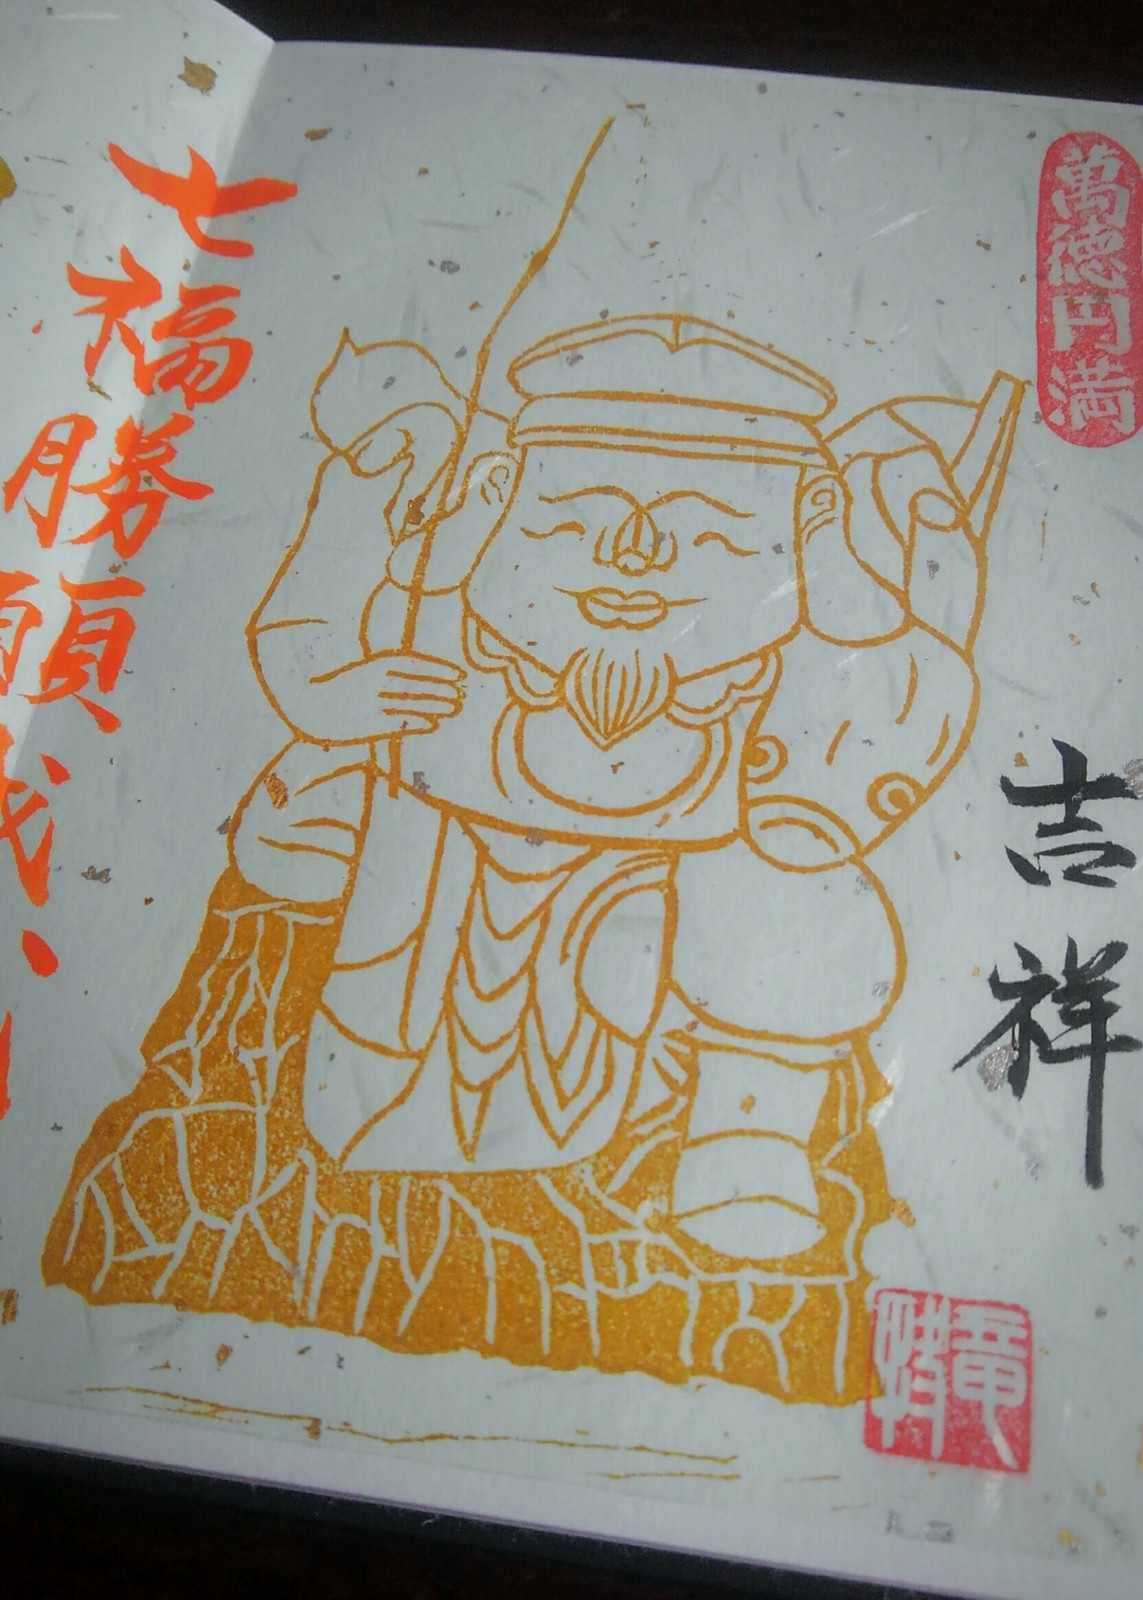 萬徳円満
吉祥
七福勝願成